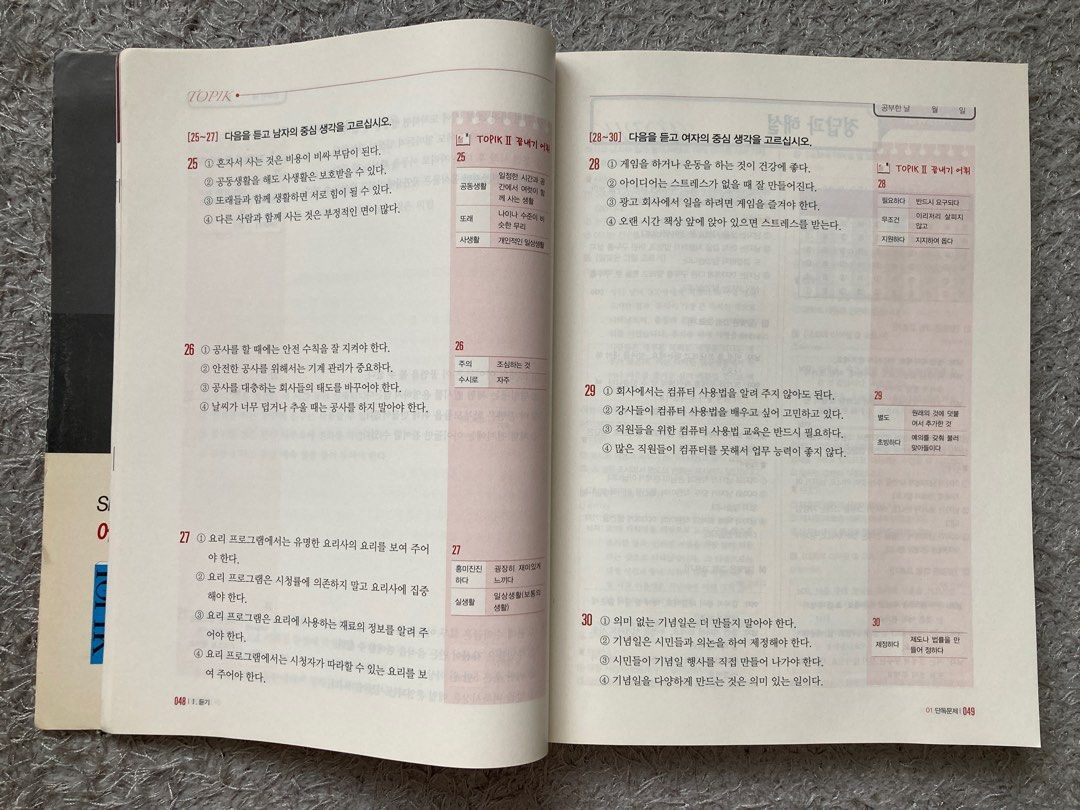 TOPIK
[25~27] 다음을 듣고 남자의 중심 생각을 고르십시오.
25 ① 혼자서 사는 것은 비용이 비싸 부담이 된다.
② 공동생활을 해도 사생활은 보호받을 수 있다.
③ 또래들과 함께 생활하면 서로 힘이 될 수 있다.
④ 다른 사람과 함께 사는 것은 부정적인 면이 많다.
26 ① 공사를 할 때에는 안전 수칙을 잘 지켜야 한다.
② 안전한 공사를 위해서는 기계 관리가 중요하다.
③ 공사를 대충하는 회사들의 태도를 바꾸어야 한다.
④ 날씨가 너무 덥거나 추울 때는 공사를 하지 말아야 한다.
27 ① 요리 프로그램에서는 유명한 요리사의 요리를 보여 주어
야 한다.
② 요리 프로그램은 시청률에 의존하지 말고 요리사에 집중
해야 한다.
③ 요리 프로그램은 요리에 사용하는 재료의 정보를 알려 주
어야 한다.
④ 요리 프로그램에서는 시청자가 따라할 수 있는 요리를 보
여 주어야 한다.
TOPIK Ⅱ 끝내기 어휘
25
공동생활 일정한 시간과 공
간에서 여럿이 함
께 사는 생활
또래 나이나 수준이 비
슷한 무리
사생활 개인적인 일상생활
26
주의 조심하는 것
수시로 자주
27
흥미진진
하다 굉장히 재미있게
느끼다
실생활 일상생활(보통의
생활)
048 | Ⅰ. 듣기
공부한 날 월 일
[28~30] 다음을 듣고 여자의 중심 생각을 고르십시오.
28 ① 게임을 하거나 운동을 하는 것이 건강에 좋다.
② 아이디어는 스트레스가 없을 때 잘 만들어진다.
③ 광고 회사에서 일을 하려면 게임을 즐겨야 한다.
④ 오랜 시간 책상 앞에 앉아 있으면 스트레스를 받는다.
29 ① 회사에서는 컴퓨터 사용법을 알려 주지 않아도 된다.
② 강사들이 컴퓨터 사용법을 배우고 싶어 고민하고 있다.
③ 직원들을 위한 컴퓨터 사용법 교육은 반드시 필요하다.
④ 많은 직원들이 컴퓨터를 못해서 업무 능력이 좋지 않다.
30 ① 의미 없는 기념일은 더 만들지 말아야 한다.
② 기념일은 시민들과 의논을 하여 제정해야 한다.
③ 시민들이 기념일 행사를 직접 만들어 나가야 한다.
④ 기념일을 다양하게 만드는 것은 의미 있는 일이다.
TOPIK Ⅱ 끝내기 어휘
28
필요하다 반드시 요구되다
무조건 이리저리 살피지
않고
지원하다 지지하여 돕다
29
별도 원래의 것에 덧붙
여서 추가한 것
초빙하다 예의를 갖춰 불러
맞아들이다
30
제정하다 제도나 법률을 만
들어 정하다
01 단독문제 | 049